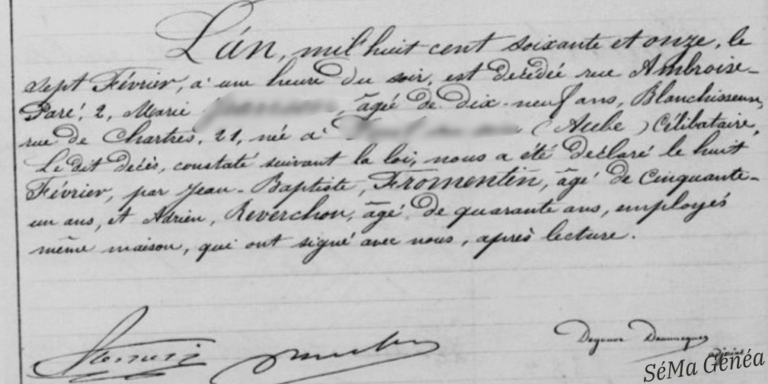 L'an, mil huit cent soixante et onze, le
sept Février, à une heure du soir, est décédée rue Ambroise-
Paré, 2, Marie , âgé de dix-neuf ans, Blanchisseuse,
rue de Chartres, 21, née à (Aube) Célibataire,
Le dit décès, constaté suivant la loi, nous a été déclaré le huit
Février, par Jean-Baptiste, Fromentin, âgé de Cinquante-
un ans, et Adrien, Reverchon, âgé de quarante ans, employés
même maison, qui ont signé avec nous, après lecture.
adjoint
SéMa Généa